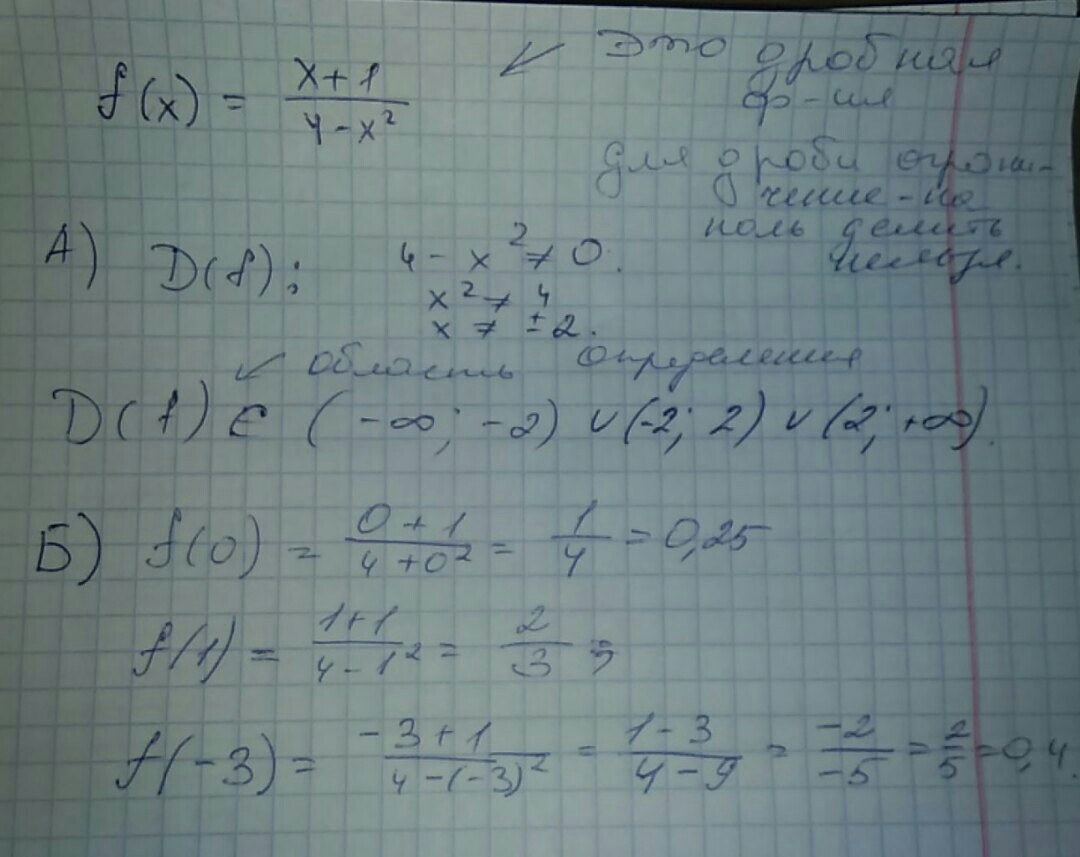 f(x) = (x+1)/(4-x²) ↙ Это дробная
ф-ция
Для дроби ограни-
чение - на
ноль делить
нельзя.
А) D(f): 4 - x² ≠ 0.
x² ≠ 4
x ≠ ±2.
↙ область определения
D(f) ∈ (-∞; -2) ∪ (-2; 2) ∪ (2; +∞).
Б) f(0) = (0+1)/(4+0²) = 1/4 = 0,25
f(1) = (1+1)/(4-1²) = 2/3;
f(-3) = (-3+1)/(4-(-3)²) = (1-3)/(4-9) = (-2)/(-5) = 2/5 = 0,4.